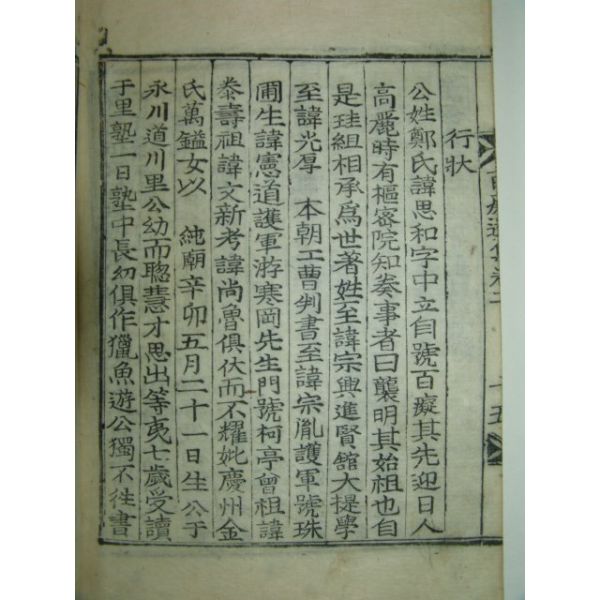 行狀
公姓鄭氏諱思和字中立自號百癡其先迎日人
高麗時有樞密院知奏事者曰襲明其始祖也自
是珪組相承爲世著姓至諱宗興進賢館大提學
至諱光厚 本朝工曹判書至諱宗胤護軍號珠
圃生諱憲道護軍游寒岡先生門號柯亭曾祖諱
泰壽祖諱文新考諱尚魯俱伏而不耀妣慶州金
氏萬鎰女以 純廟辛卯五月二十一日生公于
永川道川里公幼而聰慧才思出等夷七歲受讀
于里塾一日塾中長幼俱作獵魚遊公獨不往書
十五